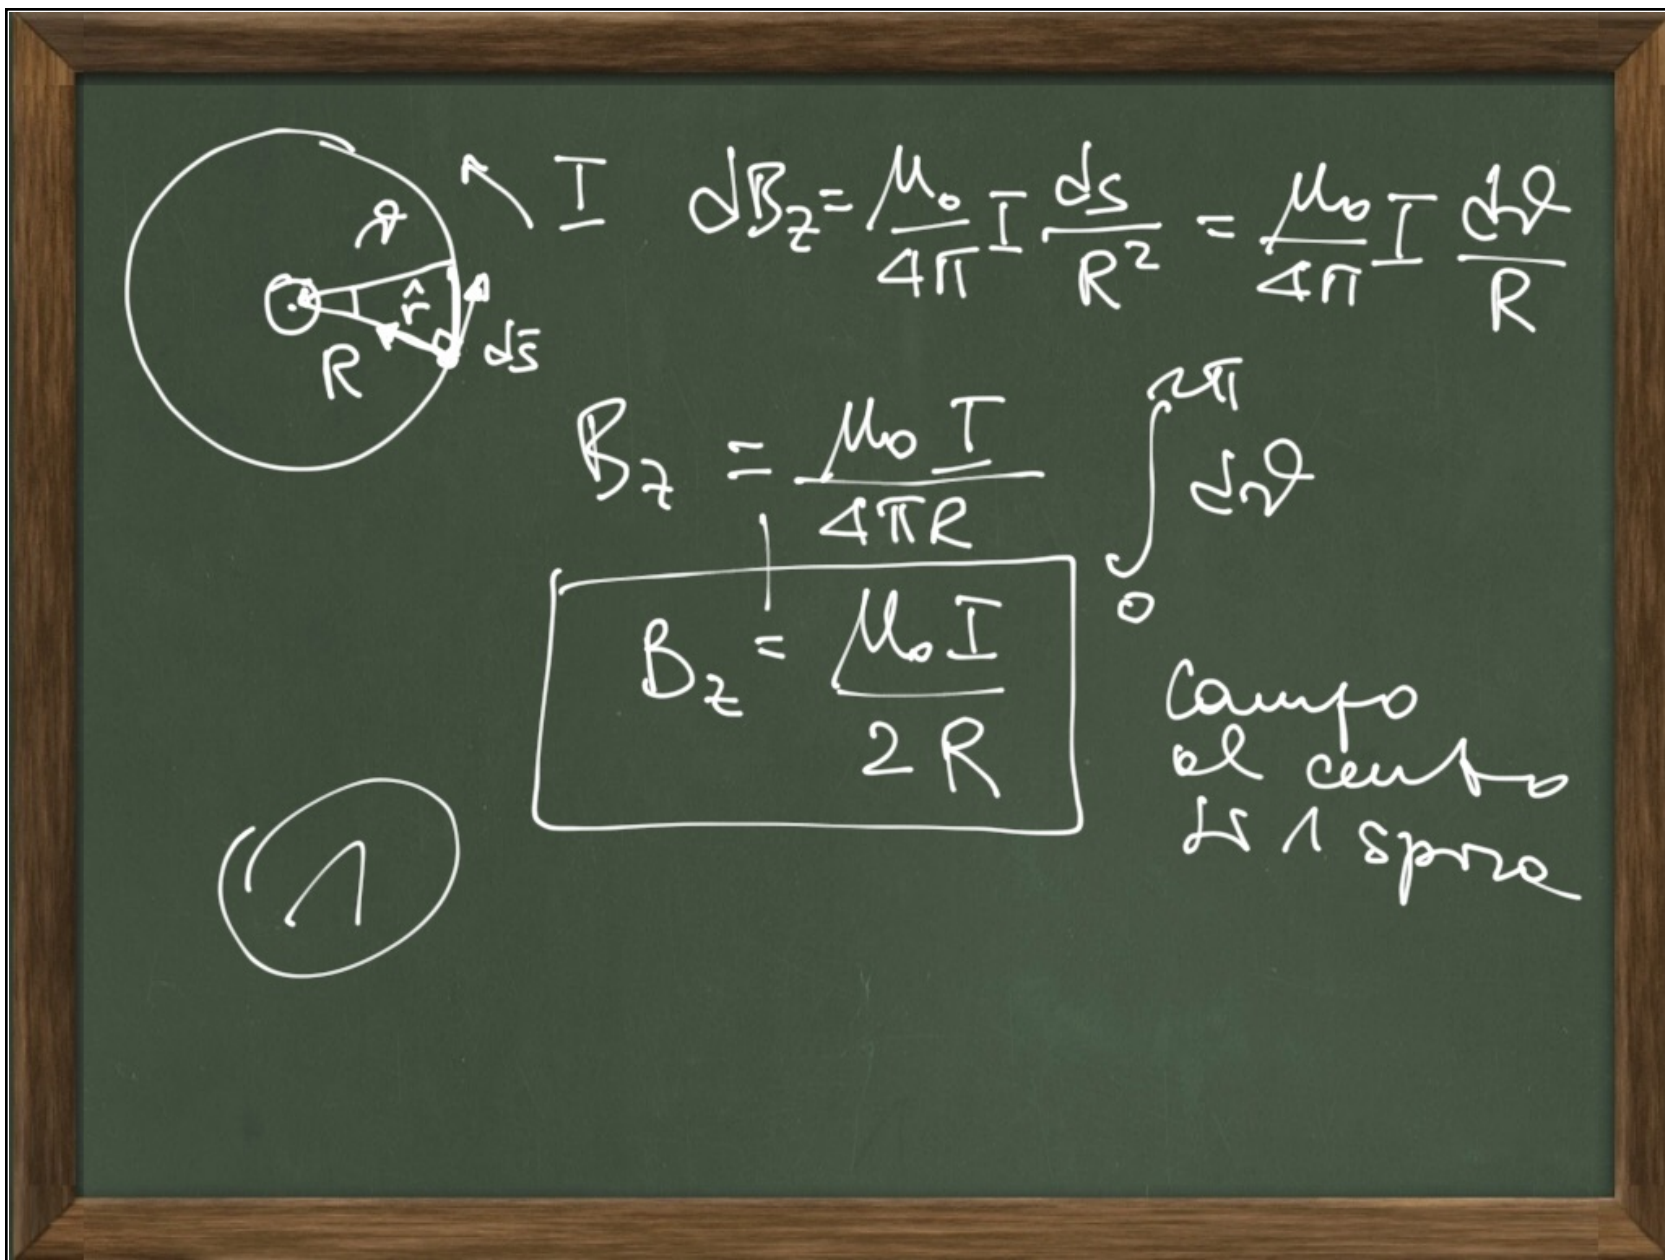 I dB_z = μ₀/4π I ds/R² = μ₀/4π I dϑ/R
ϑ
r̂
R
ds̄
B_z = μ₀ I/4πR ∫₀^2π dϑ
B_z = μ₀ I/2R
Campo
al centro
di 1 spira
1